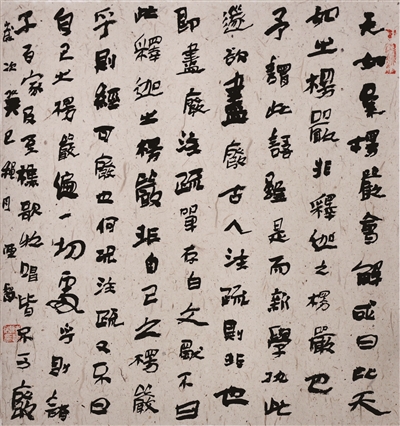 天如集楞嚴會解或曰此天
如之楞嚴非釋迦之楞嚴也
予謂此語雖是而新學執此
遂欲盡廢古人注疏則非也
即盡廢注疏單存白文獨不曰
此釋迦之楞嚴非自己之楞嚴
乎則經可廢也何況注疏又不曰
自己之楞嚴遍一切處乎則諸
子百家乃至樵歌牧唱皆不可廢
歲次癸巳